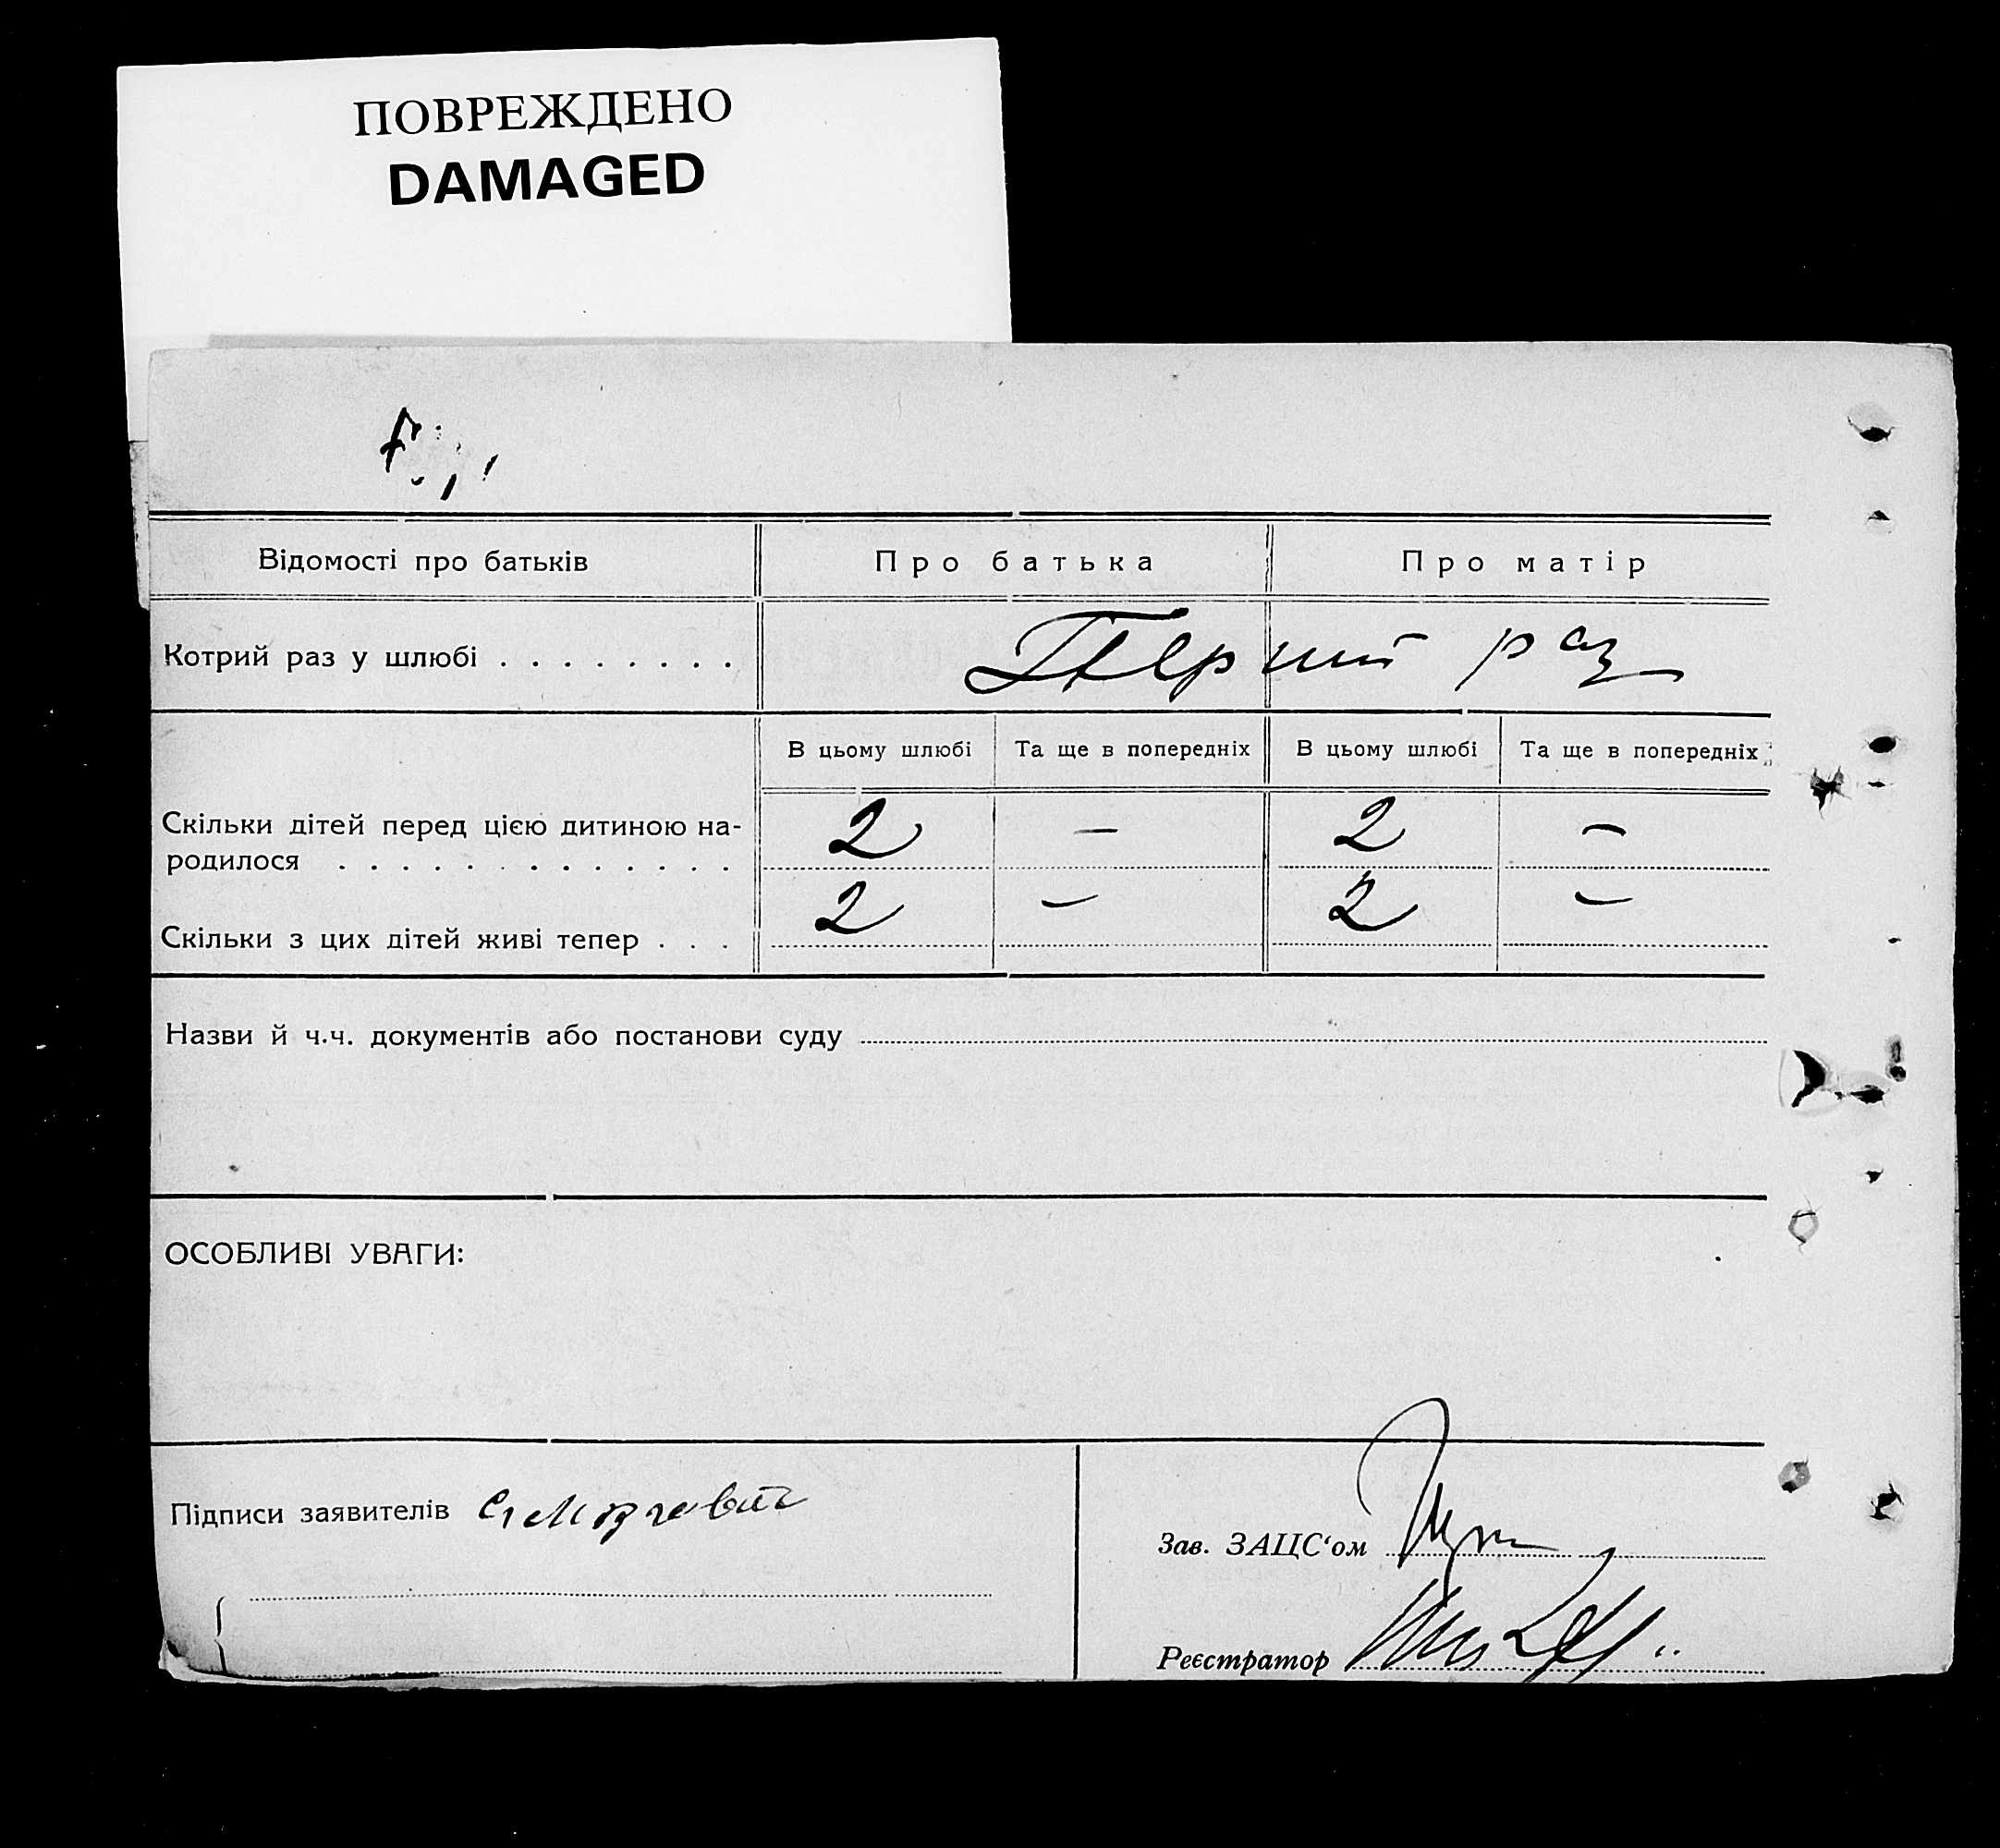 ПОВРЕЖДЕНО
DAMAGED
Відомості про батьків Про батька Про матір
Котрий раз у шлюбі . . . . . . . . Перший раз
В цьому шлюбі Та ще в попередніх В цьому шлюбі Та ще в попередніх
Скільки дітей перед цією дитиною на- 2 – 2 –
родилося . . . . . . . . . . . . .
Скільки з цих дітей живі тепер . . . 2 – 2 –
Назви й ч.ч. документів або постанови суду
ОСОБЛИВІ УВАГИ:
Підписи заявителів
Зав. ЗАЦС‘ом
Реєстратор